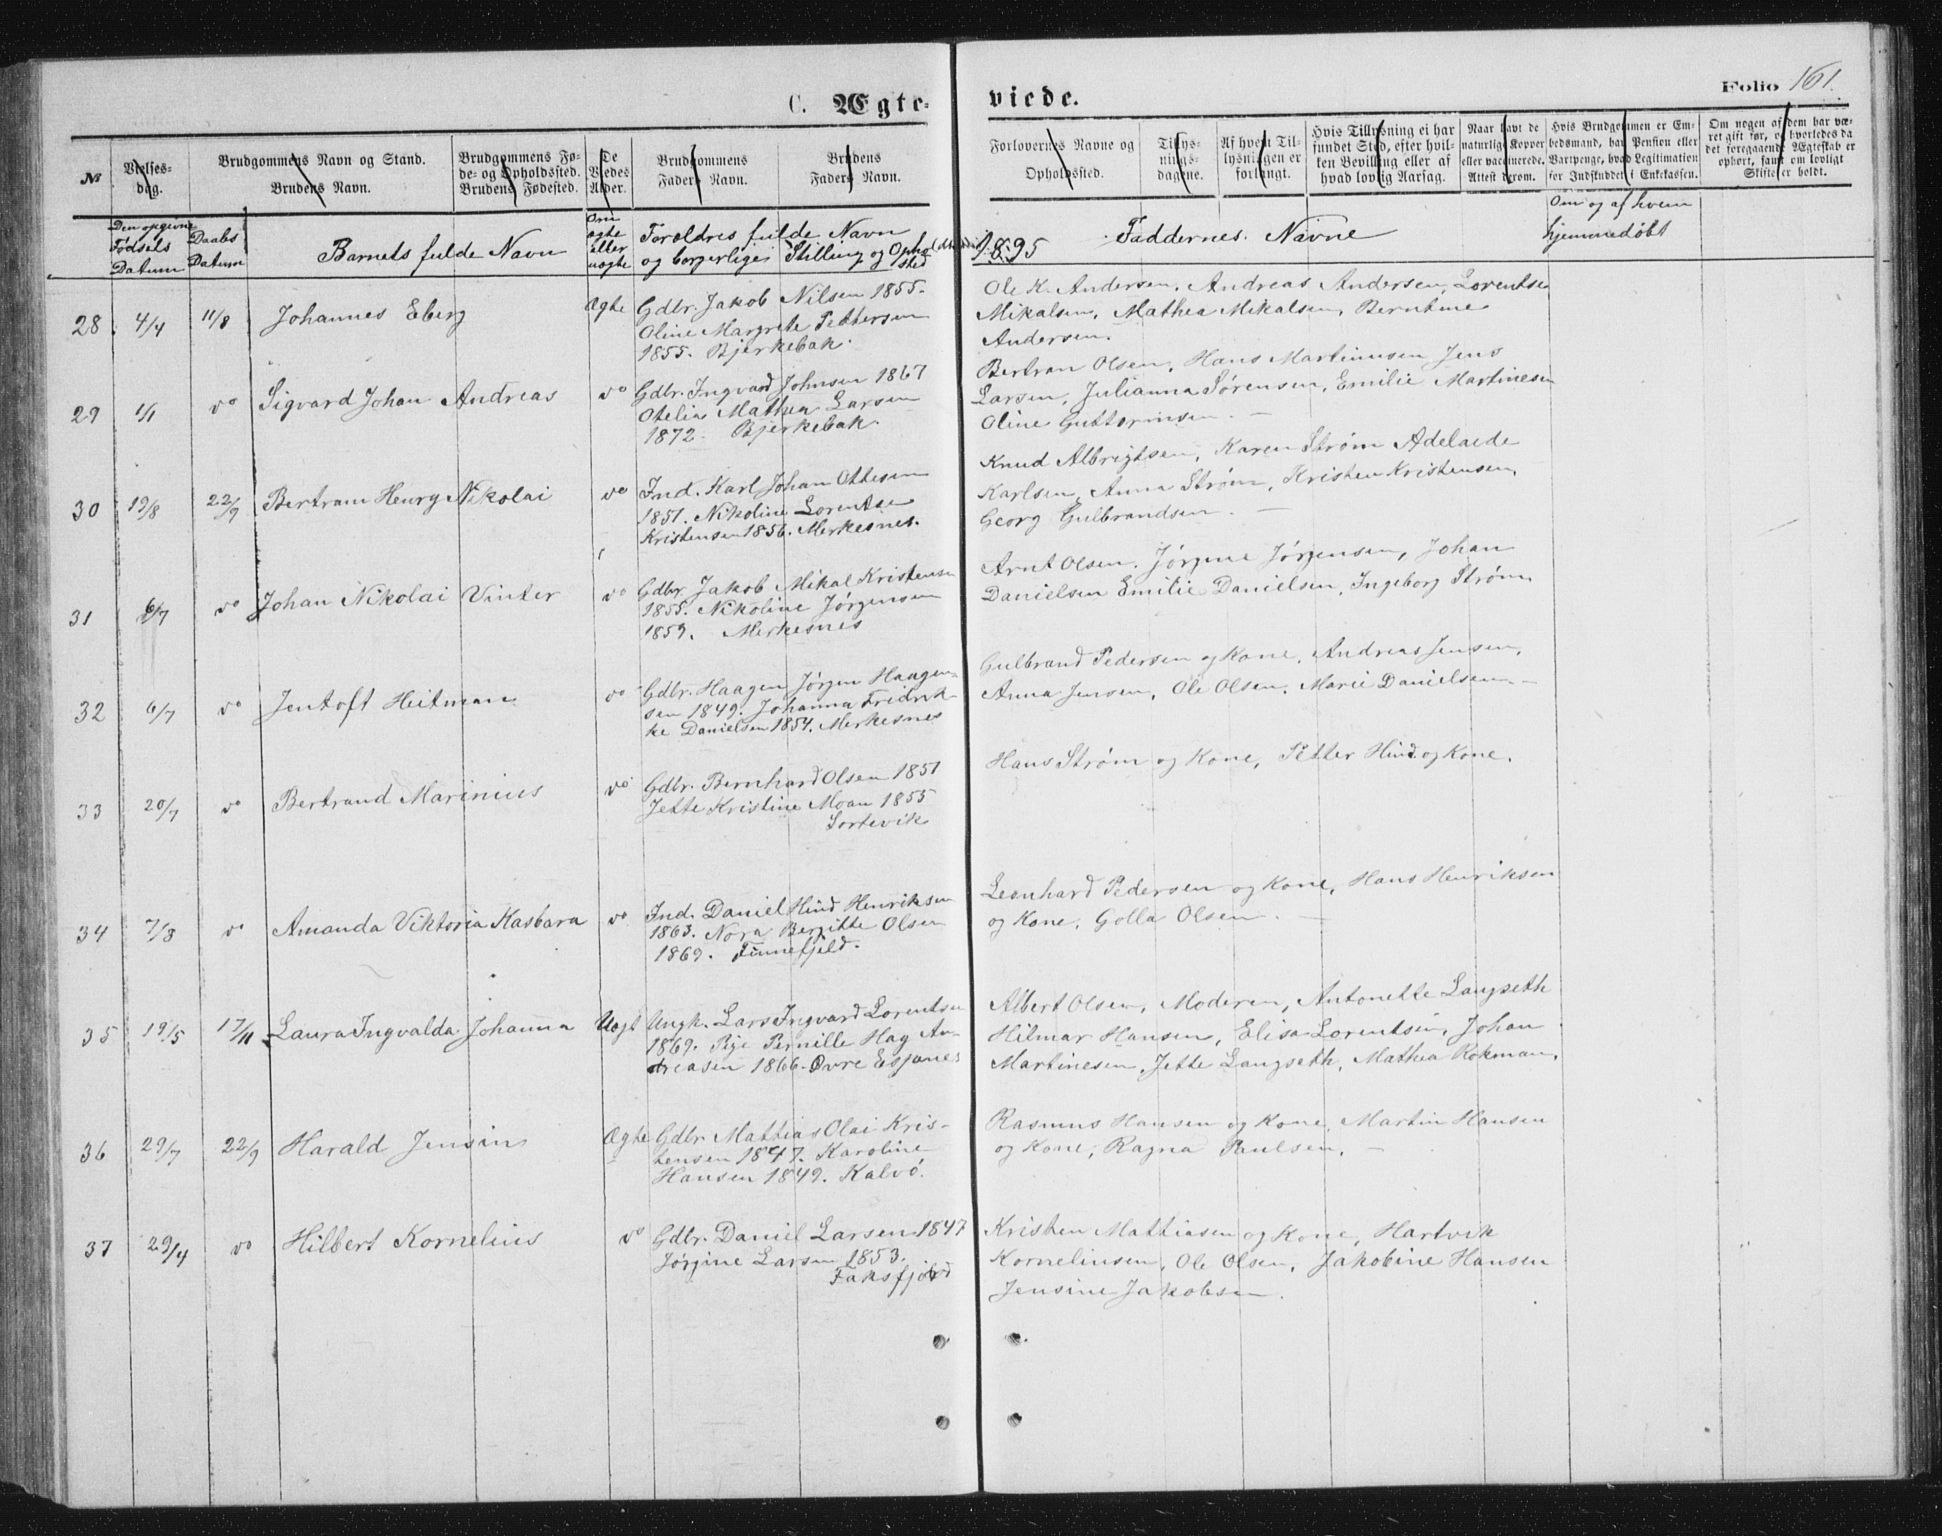 C. Ægte-
viede.
Folio 161.
№
Vielses-
dag.
Brudgommens Navn og Stand.
Brudens Navn.
Brudgommens Fø-
de- og Opholdssted.
Brudens Fødested.
De
Viedes
Alder.
Brudgommens
Faders Navn.
Brudens
Faders Navn.
Forlovernes Navne og
Opholdssted.
Tillys-
nings-
dagene.
Af hvem Til-
lysningen er
forlangt.
Hvis Tillysning ei har
fundet Sted, efter hvil-
ken Bevilling eller af
hvad lovlig Aarsag.
Naar havt de
naturlige Kopper
eller vaccinerede.
Attest derom.
Hvis Brudgommen er Em-
bedsmand, har Pension eller
Vartpenge, hvad Legitimation
for Indskuddet i Enkekassen.
Om nogen af dem har væ-
ret gift før, og hvorledes da
det foregaaende Ægteskab er
ophørt, samt om lovligt
Skifte er holdt.
Den opgivne
Fødsels
Datum
Daabs
Datum
Barnets fulde Navn
Om
ægte
eller
uægte
Foreldres fulde Navn
og borgerlige Stilling og Opholds
sted
1895
Faddernes Navne
Om og af hvem
hjemmedøbt
28 4/4 11/8 Johannes Eberg Ægte Gdbr. Jakob Nilsen 1855.
Oline Margrete Pettersen
1855. Bjerkebak.
Ole K. Andersen, Andreas Andersen, Lorentse
Mikalsen, Mathea Mikalsen, Berntine
Andersen.
29 1/1 vo Sigvard Johan Andreas vo Gdbr. Ingvard Johnsen 1867
Otelia Mathea Larsen
1872. Bjerkebak.
Bertran Olsen, Hans Martinusen Jens
Larsen, Julianna Sørensen, Emilie Martinesen
Oline Guttormsen. —
30 19/8 22/9 Bertram Henry Nikolai vo Ind. Karl Johan Ottesen
1851. Nikoline Lorentse
Kristensen 1856. Merkesnes.
Knud Albrigtsen, Karen Strøm Adelaide
Karlsen, Anna Strøm, Kristen Kristensen,
Georg Gulbrandsen. —
31 6/7 vo Johan Nikolai Vinter vo Gdbr. Jakob Mikal Kristensen
1855. Nikoline Jørgensen
1859. Merkesnes
Arnt Olsen. Jørgine Jørgensen, Johan
Danielsen Emilie Danielsen, Ingeborg Strøm
32 6/7 vo Jentoft Heitman vo Gdbr. Haagen Jørgen Haagen-
sen 1849. Johanna Fredrik-
ke Danielsen 1854. Merkesnes
Gulbrand Pedersen og Kone, Andreas Jensen,
Anna Jensen, Ole Olsen, Marie Danielsen. —
33 20/7 vo Bertrand Marinius vo Gdbr. Bernhard Olsen 1851
Jette Kristine Moan 1855
Sortevik
Hans Strøm og Kone, Petter Hind og Kone.
34 7/8 vo Amanda Viktoria Kasbara vo Ind. Daniel Hind Henriksen
1863. Nora Bergitte Olsen
1869. Finnefjeld.
Leonhard Pedersen og Kone, Hans Henriksen
og Kone, Golla Olsen. —
35 19/5 17/11 Laura Ingvalda Johanna Uægt Ungk. Lars Ingvard Lorentsen
1869. Pige Pernille Hag An-
dreasen 1866. Øvre Esjanes
Albert Olsen, Moderen, Antonette Langseth
Hilmar Hansen, Elisa Lorentsen, Johan
Martinesen, Jette Langseth, Mathea Rokman.
36 29/7 22/9 Harald Jensin Ægte Gdbr. Mattias Olai Kris-
tensen 1847. Karoline
Hansen 1849. Kalvö.
Rasmus Hansen og Kone, Martin Hansen
og Kone, Ragna Paulsen. —
37 29/4 vo Hilbert Kornelius vo Gdbr. Daniel Larsen 1847
Jørgine Larsen 1853.
Faksfjord
Kristen Mattiasen og Kone, Hartvik
Korneliusen, Ole Olsen, Jakobine Hansen
Jensine Jakobsen.